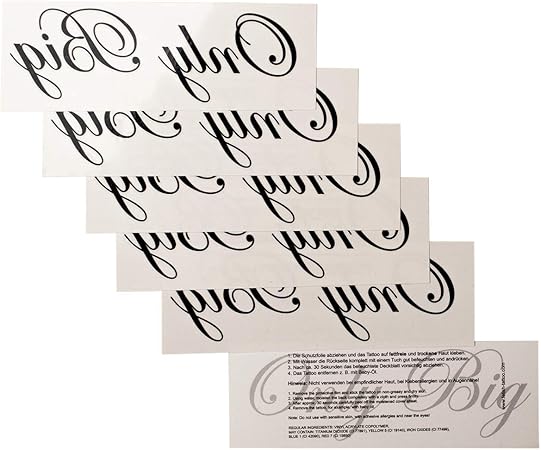 Only Big
Only Big
Only Big
Only Big
Only Big
1. Die Schutzfolie abziehen und das Tattoo auf fettfreie und trockene Haut kleben.
2. Mit Wasser die Rückseite komplett mit einem Tuch gut befeuchten und andrücken.
3. Nach ca. 30 Sekunden das befeuchtete Deckblatt vorsichtig abziehen.
4. Das Tattoo entfernen z. B. mit Baby-Öl.
Hinweis: Nicht verwenden bei empfindlicher Haut, bei Kleberallergien und in Augennähe!
Only Big
1. Remove the protective film and stick the tattoo on non-greasy and dry skin.
2. Using water moisten the back completely with a cloth and press firmly.
3. After approx. 30 seconds, carefully peel off the moistened cover sheet.
4. Remove the tattoo, for example, with baby oil.
Note: Do not use with sensitive skin, with adhesive allergies and near the eyes!
REGULAR INGREDIENTS: VINYL ACRYLATE COPOLYMER,
MAY CONTAIN: TITANIUM DIOXIDE (CI 77891), YELLOW 5 (CI 19140), IRON OXIDES (CI 77499),
BLUE 1 (CI 42090), RED 7 (CI 15850)